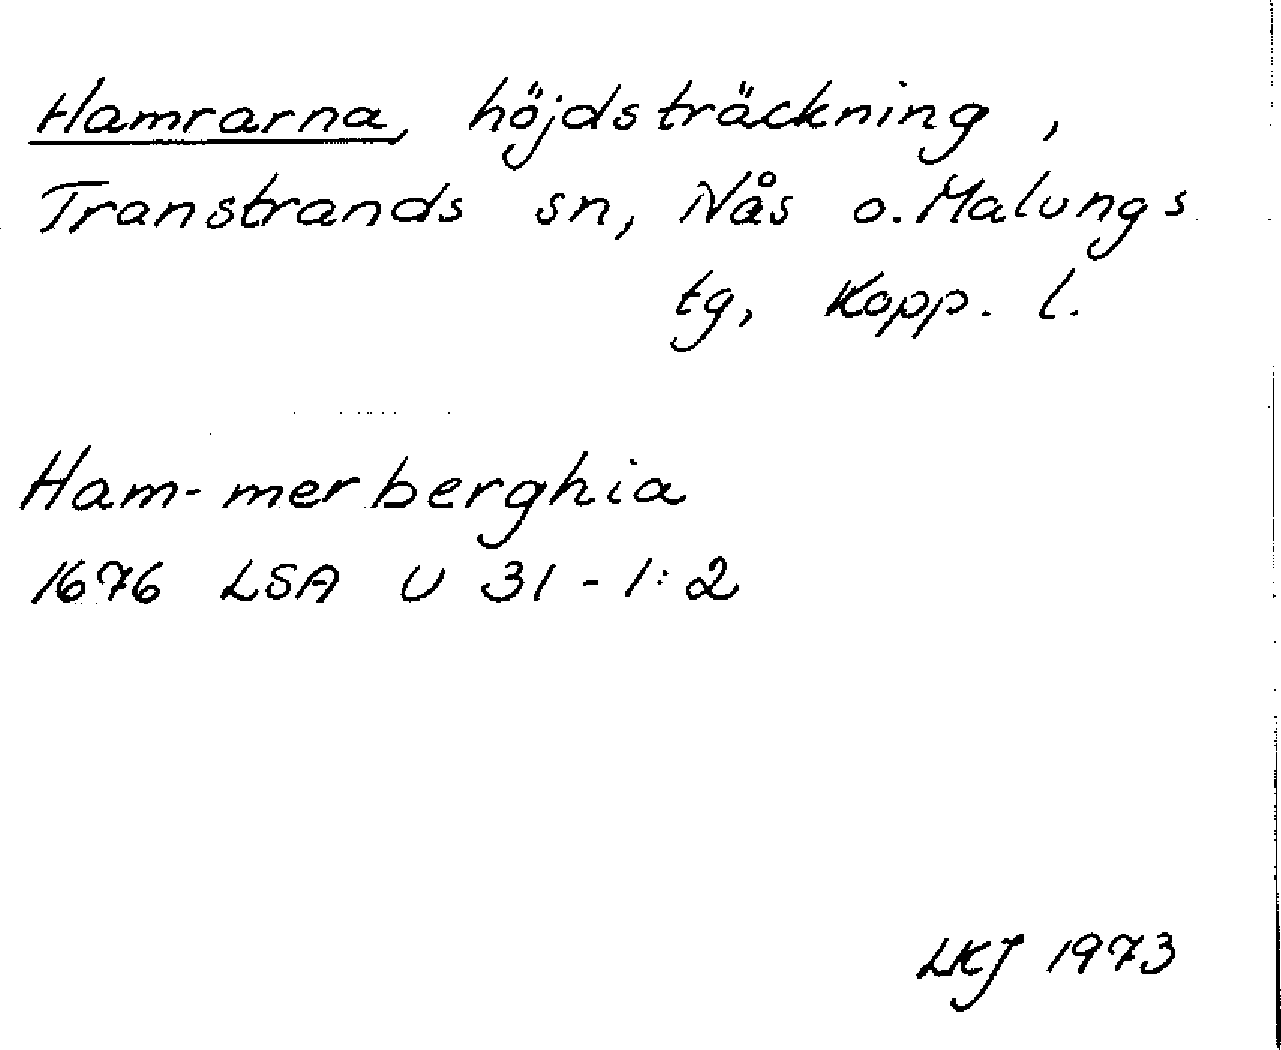 Hamrarna, höjdsträckning,
Transtrands sn, Nås o. Malungs
tg, Kopp. l.
Ham-merberghia
1676 LSA U 31-1:2
LKJ 1973